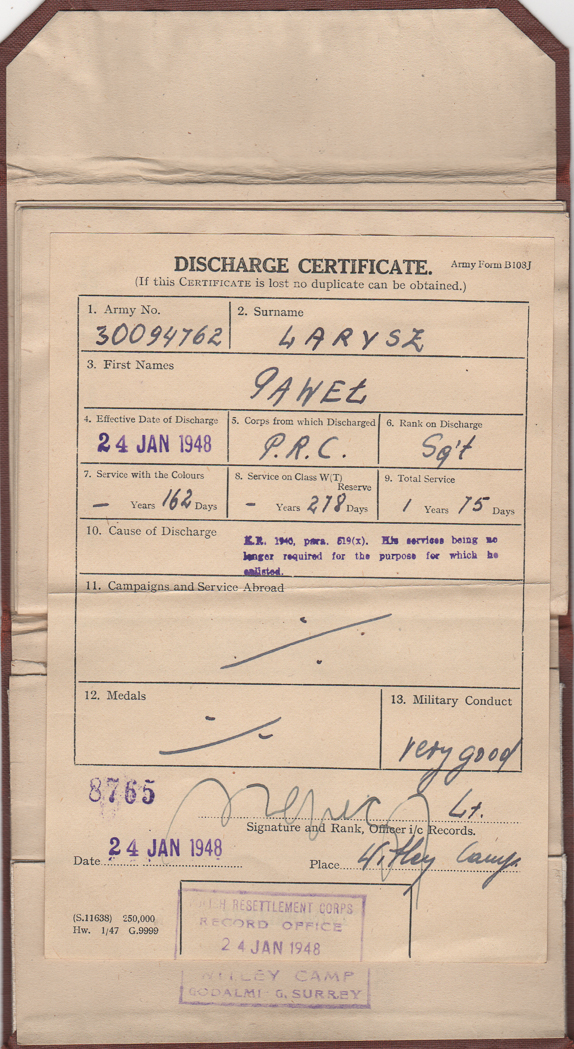 DISCHARGE CERTIFICATE. Army Form B108J
(If this CERTIFICATE is lost no duplicate can be obtained.)
1. Army No. 2. Surname
30094762 LARYSZ
3. First Names
PAWEŁ
4. Effective Date of Discharge 5. Corps from which Discharged 6. Rank on Discharge
24 JAN 1948 P.R.C. Sg't
7. Service with the Colours 8. Service on Class W(T) Reserve 9. Total Service
— Years 162 Days - Years 278 Days 1 Years 75 Days
10. Cause of Discharge K.R. 1940, para. 519(x). His services being no
longer required for the purpose for which he
enlisted.
11. Campaigns and Service Abroad
12. Medals 13. Military Conduct
very good
8765 Lt.
Signature and Rank, Officer i/c Records.
Date 24 JAN 1948 Place Witley Camp.
RESETTLEMENT CORPS
(S.11638) 250,000 RECORD OFFICE
Hw. 1/47 G.9999 24 JAN 1948
WITLEY CAMP
GODALMI G, SURREY